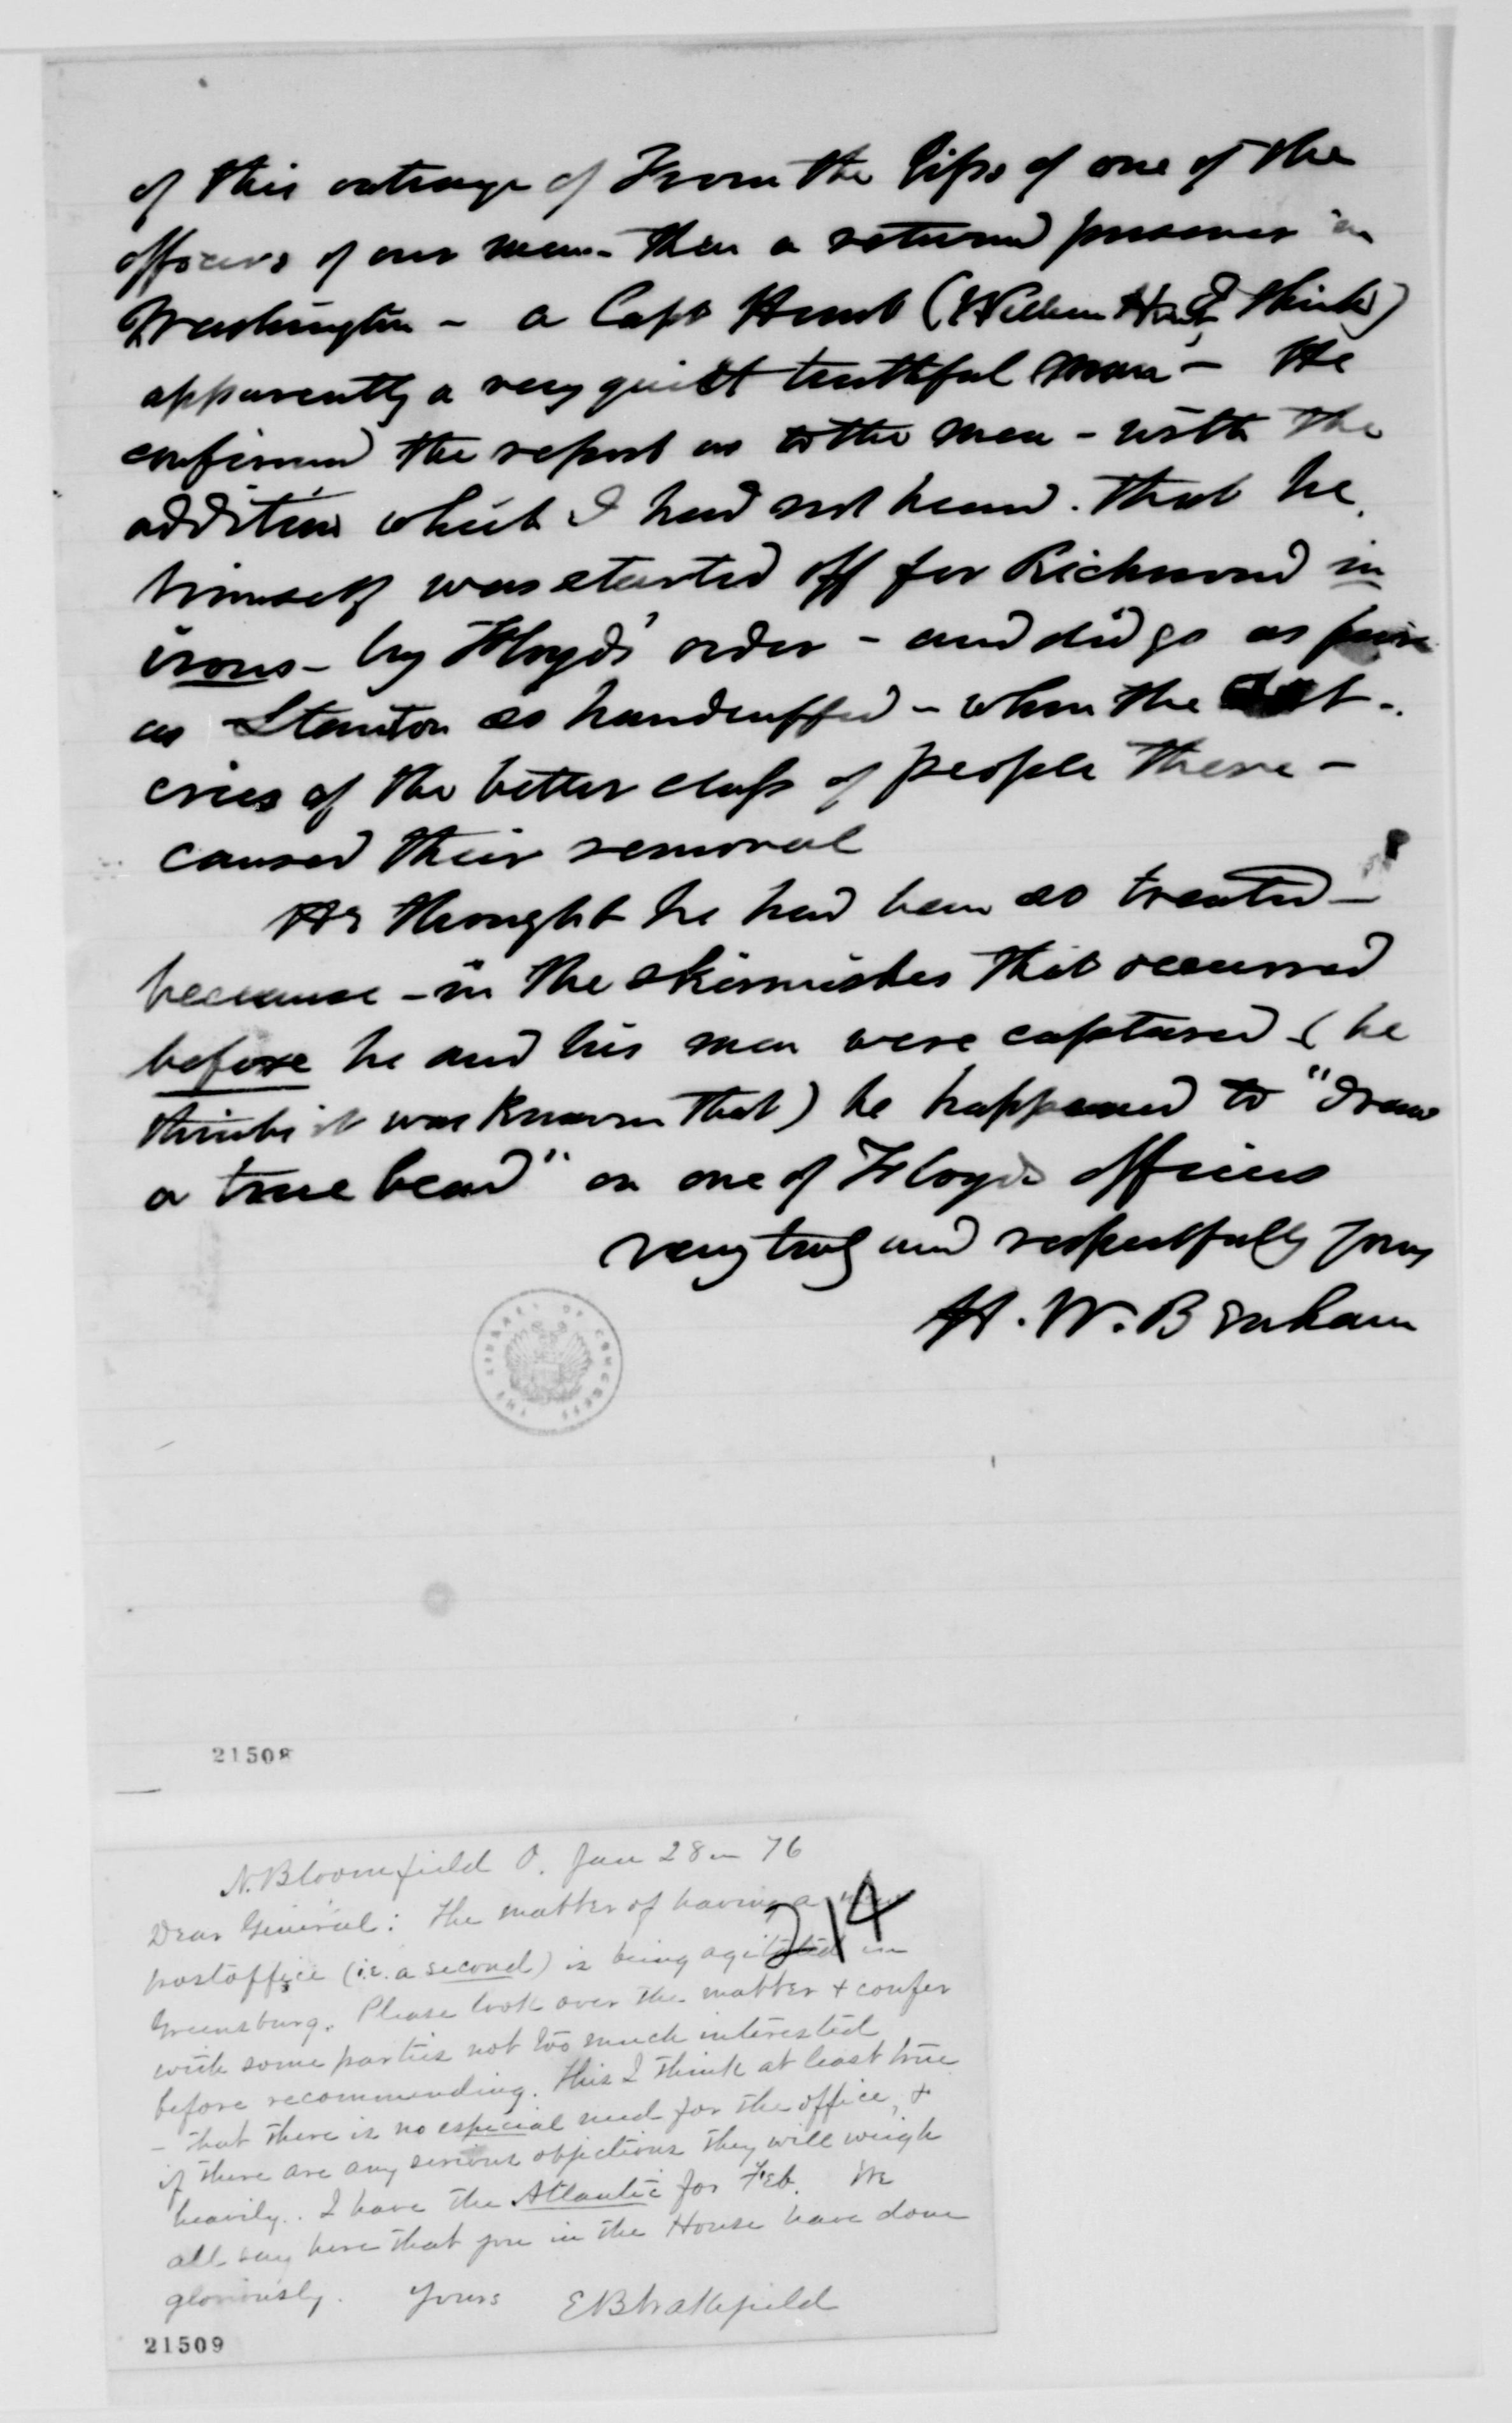 of this outrage of From the lips of one of the
officers of our men - then a returned prisoner in
Washington - a Capt Hunt (William Hunt, I think)
apparently a very quiet truthful man - He
confirmed the report as to the men - with the
addition which I had not heard. that he
himself was started off for Richmond in
irons - by Floyds' order - and did go as far
as Staunton so handcuffed - when the out-
cries of the better class of people there -
caused their removal
He thought he had been so treated -
because - in the skirmishes that occurred
before he and his men were captured (he
thinks it was known that) he happened to "draw
a true bead" on one of Floyds officers
very truly and respectfully yours
H. W. Benham
THE LIBRARY OF CONGRESS
21508
N. Bloomfield O. Jan 28 - 76
Dear General: The matter of having a new
214
postoffice (i.e. a second) is being agitated in
Greensburg. Please look over the matter & confer
with some parties not too much interested
before recommending. This I think at least true
- that there is no especial need for the office, &
if there are any serious objections they will weigh
heavily. I have the Atlantic for Feb. We
all say here that you in the House have done
gloriously. Yours E B Wakefield
21509